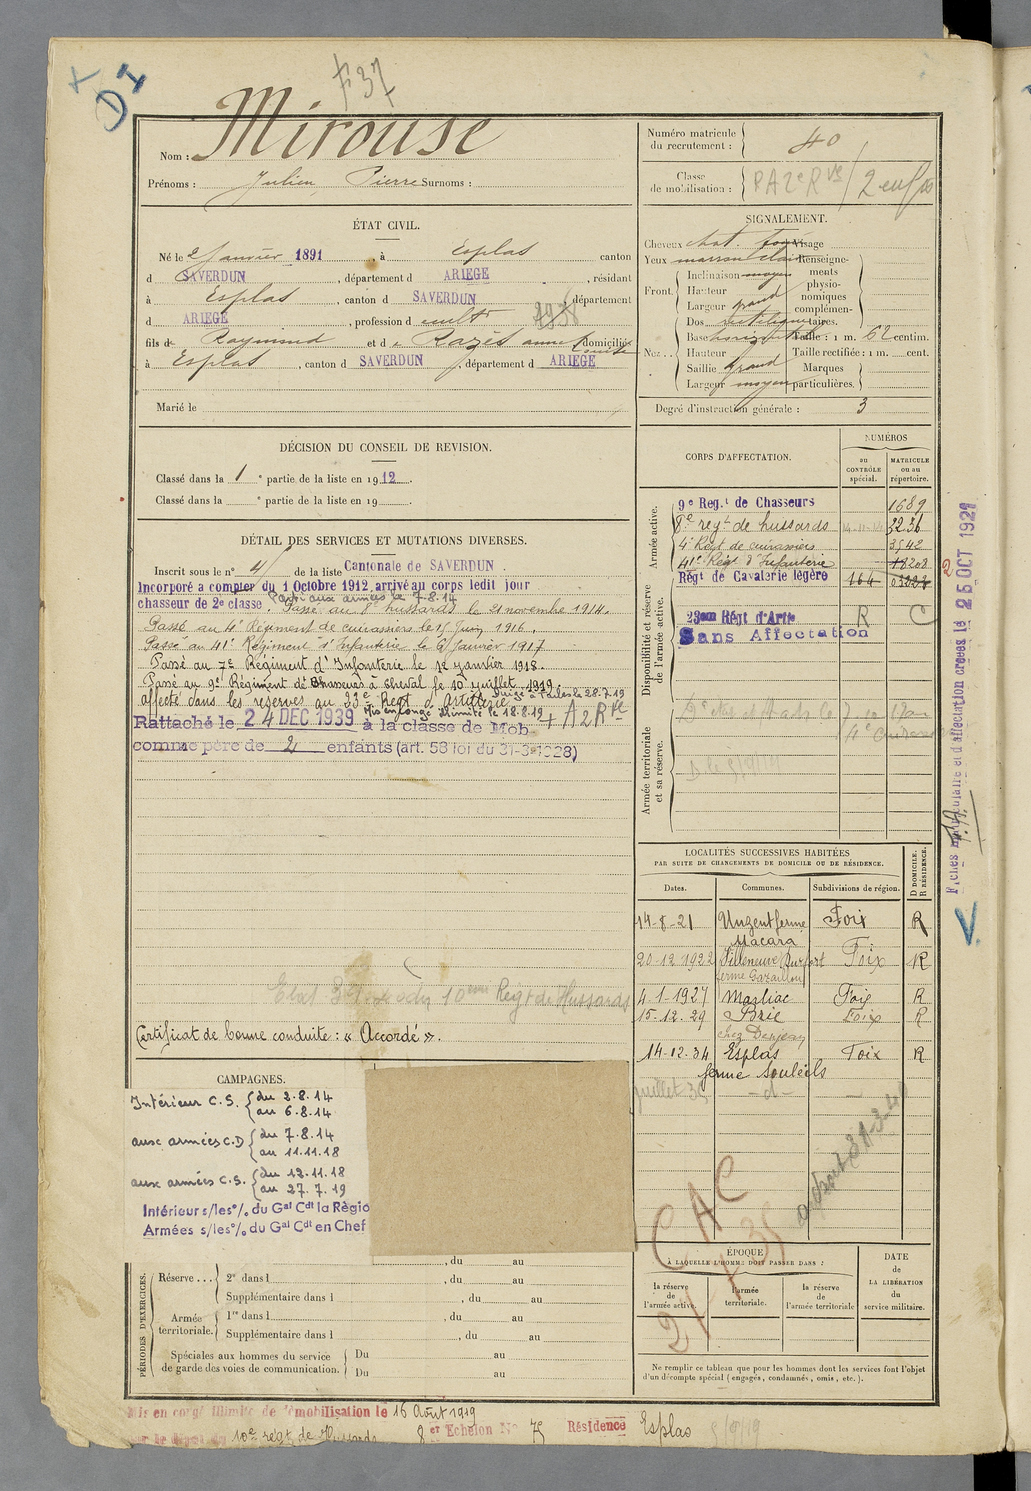 D I
F 37
Nom : Mirouse
Prénoms : Julien, Pierre Surnoms :
Numéro matricule
du recrutement : 40
Classe
de mobilisation : PA2eRve / 2 enfts
ÉTAT CIVIL.
Né le 2 Janvier 1891, à Esplas canton
d SAVERDUN, département d ARIEGE, résidant
à Esplas, canton d SAVERDUN, département
d ARIEGE, profession d cultr
fils de Raymond et de Razès anne domiciliés
à Esplas, canton d SAVERDUN, département d ARIEGE
Marié le
SIGNALEMENT.
Cheveux chat. Visage
Yeux marron clair Renseigne-
Inclinaison moyen ments
Front. Hauteur physio-
Largeur grand nomiques
complémen-
Dos rectiligne taires.
Base horizontale Taille : 1 m. 62 centim.
Nez . . Hauteur Taille rectifiée : 1 m. cent.
Saillie grand Marques
Largeur moyen particulières.
Degré d'instruction générale : 3
DÉCISION DU CONSEIL DE REVISION.
Classé dans la 1e partie de la liste en 1912.
Classé dans la e partie de la liste en 19
DÉTAIL DES SERVICES ET MUTATIONS DIVERSES.
Inscrit sous le n° 4 de la liste Cantonale de SAVERDUN .
Incorporé a compter du 1 Octobre 1912 arrivé au corps ledit jour
chasseur de 2e classe. Parti aux armées le 7-8.14
Passé au 8e hussards le 21 novembre 1914.
Passé au 4e Régiment de cuirassiers le 15 Juin 1916.
Passé au 41e Régiment d'Infanterie le 6 Janvier 1917
Passé au 7e Régiment d'Infanterie le 1e janvier 1918.
Passé au 9e Régiment de Chasseurs à cheval le 10 juillet 1919.
affecté dans les réserves au 23e Régt d'artillerie
Mis en congé illimité le 18.8.19 + A2Rve
Rattaché le 24 DEC 1939 à la classe de Mob
comme père de 2 enfants (art. 58 loi du 31-3-1928)
10eme Regt de Hussards
Certificat de bonne conduite : « Accordé ».
CORPS D'AFFECTATION.
NUMÉROS
au
CONTRÔLE
spécial.
MATRICULE
ou au
répertoire.
Armée active.
9e Reg.t de Chasseurs 1689
8e regt de hussards 3236
4e Régt de cuirassiers 3542
41e Régt d'Infanterie 18208
Disponibilité et réserve
de l'armée active.
Régt de Cavalerie légère 164
23eme Régt d'Artie R C
Sans Affectation
Armée territoriale
et sa réserve.
Fiches matriculaire et d'affectation créées le 25 OCT 1921
LOCALITÉS SUCCESSIVES HABITÉES
PAR SUITE DE CHANGEMENTS DE DOMICILE OU DE RÉSIDENCE.
Dates. Communes. Subdivisions de région. D DOMICILE. R RÉSIDENCE.
14-8-21 Unzent ferme Macara Foix R
20-12 1922 Villeneuve Durfort ferme Gazaillou Foix R
4-1-1927 Mazliac Foix R
15-12-29 Brie chez Denjean Foix R
14-12-34 Esplas ferme Souleils Foix R
juillet 35 - d -
CAMPAGNES.
Intérieur C.S. du 2.8.14
au 6.8.14
aux armées C.D du 7.8.14
au 11.11.18
aux armées C.S. du 12.11.18
au 27.7.19
Intérieur s/les °/. du Gal Cdt la Régio
Armées s/les °/. du Gal Cdt en Chef
CAC
PÉRIODES D'EXERCICES.
, du au
Réserve . . . 2e dans l , du au
Supplémentaire dans l , du au
Armée
territoriale.
1re dans l , du au
Supplémentaire dans l , du au
Spéciales aux hommes du service
de garde des voies de communication.
Du au
Du au
ÉPOQUE
À LAQUELLE L'HOMME DOIT PASSER DANS :
la réserve
de
l'armée active.
l'armée
territoriale.
la réserve
de
l'armée territoriale
DATE
de
LA LIBÉRATION
du
service militaire.
Ne remplir ce tableau que pour les hommes dont les services font l'objet
d'un décompte spécial ( engagés, condamnés, omis, etc.).
Mis en congé illimité de démobilisation le 16 Août 1919
10e régt de Hussards 8er Echelon N° 75 Résidence Esplas